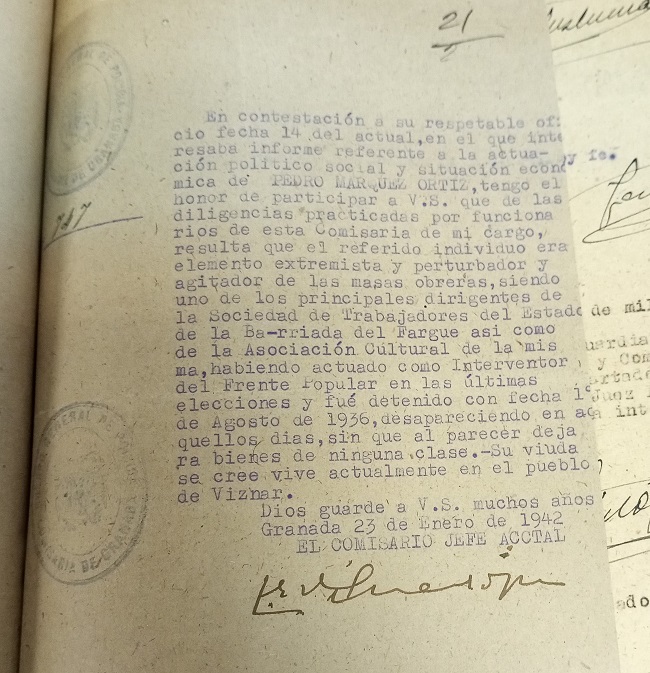 21
En contestación a su respetable ofi
cio fecha 14 del actual,en el que inte
resaba informe referente a la actua-
ción político social y situación econó
mica de PEDRO MARQUEZ ORTIZ,tengo el
honor de participar a V.S. que de las
diligencias practicadas por funciona
rios de esta Comisaria de mi cargo,
resulta que el referido individuo era
elemento extremista y perturbador y
agitador de las masas obreras,siendo
uno de los principales dirigentes de
la Sociedad de Trabajadores del Estado
de la Ba-rriada del Fargue asi como
de la Asociación Cultural de la mis
ma,habiendo actuado como Interventor
del Frente Popular en las últimas
elecciones y fué detenido con fecha 1º
de Agosto de 1936,desapareciendo en a
quellos dias,sin que al parecer deja
ra bienes de ninguna clase.-Su viuda
se cree vive actualmente en el pueblo
de Viznar.
Dios guarde a V.S. muchos años
Granada 23 de Enero de 1942
EL COMISARIO JEFE ACCTAL
747
y fe.
de mil
uardia
y Com
Juez
int
ado